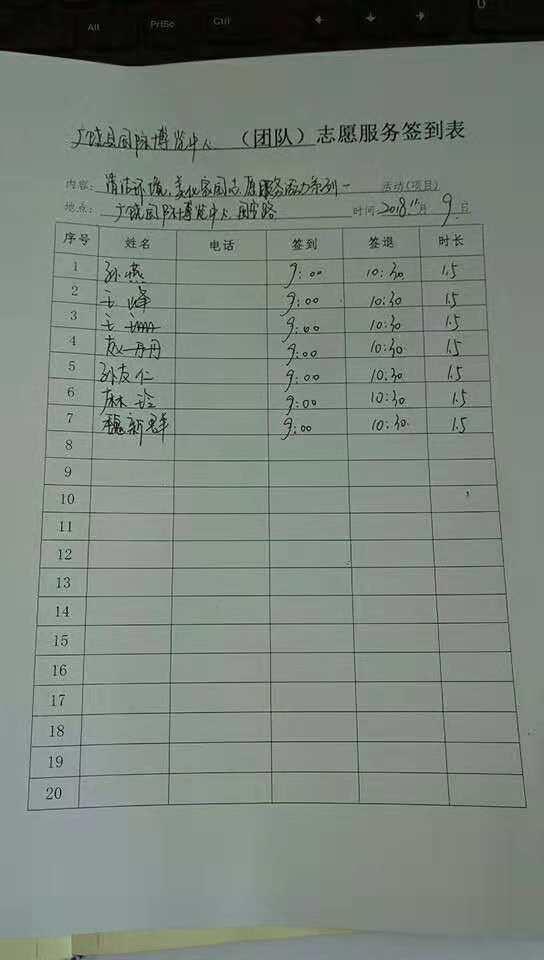 Alt PrtSc Ctrl 0
广饶县国际博览中心 （团队）志愿服务签到表
内容: 清洁环境,美化家园志愿服务活动系列一 活动(项目)
地点: 广饶国际博览中心 时间:2018.11月9日
序号 姓名 电话 签到 签退 时长
1 孙燕 9:00 10:30 1.5
2 王峰 9:00 10:30 1.5
3 王 9:00 10:30 1.5
4 赵丹丹 9:00 10:30 1.5
5 孙友仁 9:00 10:30 1.5
6 麻玲 9:00 10:30 1.5
7 魏新群 9:00 10:30 1.5
8
9
10
11
12
13
14
15
16
17
18
19
20